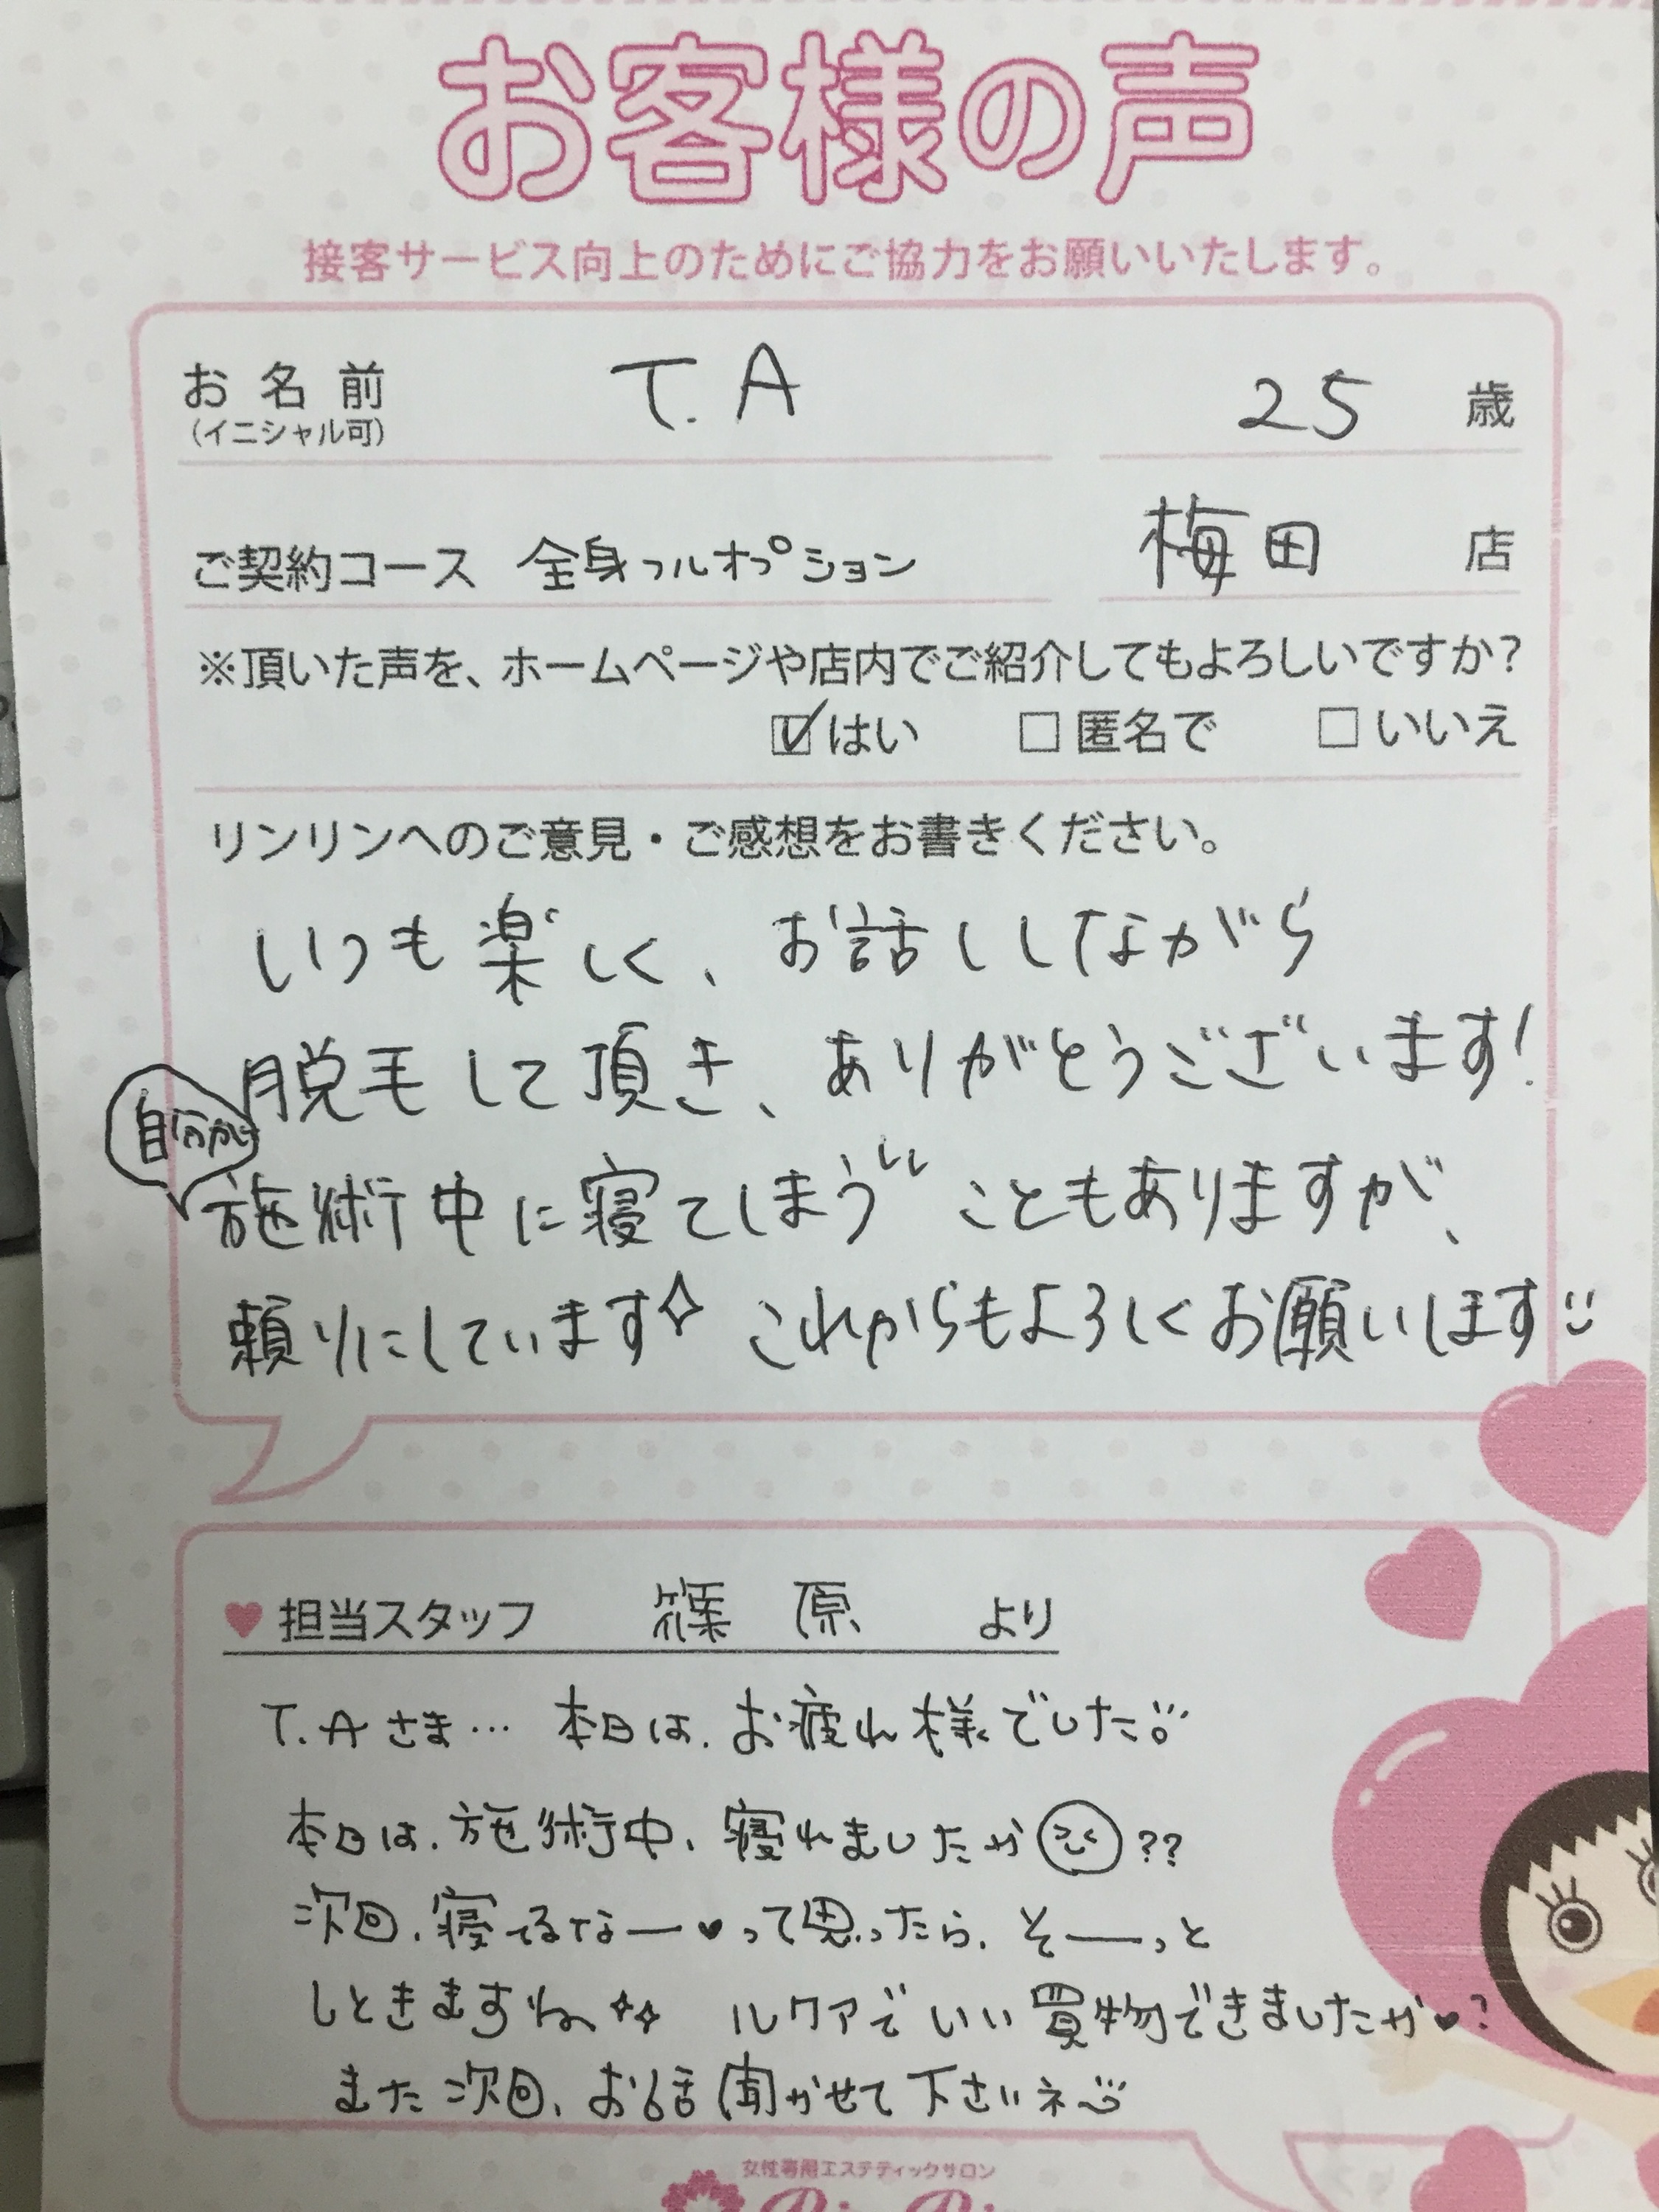 お客様の声
接客サービス向上のためにご協力をお願いいたします。
お名前 T.A 25 歳
(イニシャル可)
ご契約コース 全身フルオプション 梅田 店
※頂いた声を、ホームページや店内でご紹介してもよろしいですか?
☑はい □匿名で □いいえ
リンリンへのご意見・ご感想をお書きください。
いつも楽しく、お話ししながら
脱毛して頂き、ありがとうございます!
自分が
施術中に寝てしまう こともありますが、
頼りにしています これからもよろしくお願いします
♥担当スタッフ 篠原 より
T.Aさま… 本日は、お疲れ様でした
本日は、施術中、寝れましたか??
次回、寝てるなー♥って思ったら、そーっと
しときますね ルクアでいい買物できましたか♥?
また次回、お話聞かせて下さいネ
女性専用エステティックサロン